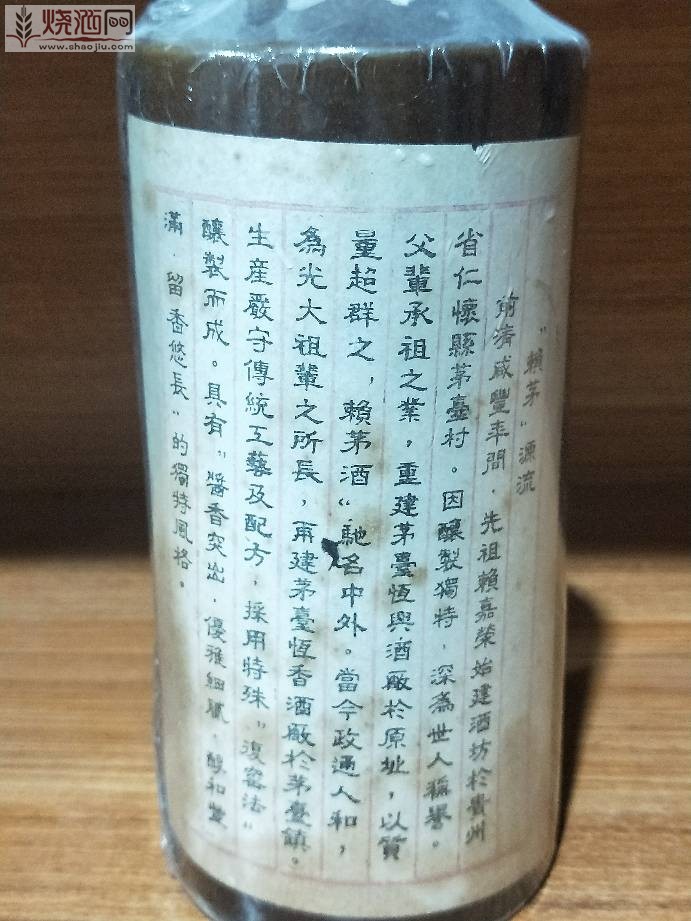 烧酒网
www.shaojiu.com
"賴茅"源流
前清咸豐年間，先祖賴嘉榮始建酒坊於貴州
省仁懷縣茅臺村。因釀製獨特，深為世人稱譽。
父輩承祖之業，重建茅臺恆興酒廠於原址，以質
量超群之，賴茅酒"馳名中外。當今政通人和，
為光大祖輩之所長，再建茅臺恆香酒廠於茅臺鎮。
生産嚴守傳統工藝及配方，採用特殊"復窖法"
釀製而成。具有"醬香突出，優雅細膩，醇和豐
滿，留香悠長"的獨特風格。